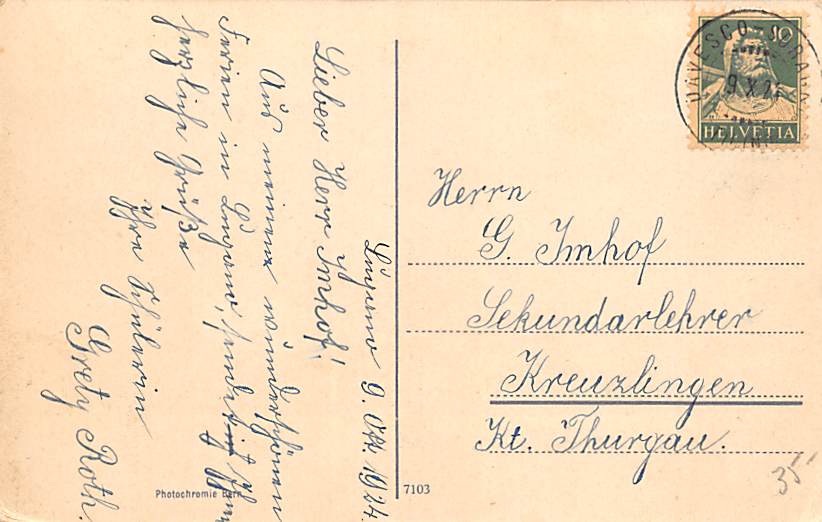 Lugano 9. Okt. 1924.
Lieber Herr Imhof!
Aus meinen wunderschönen
Ferien in Lugano, sendet Ihnen
herzliche Grüße
Ihre Schülerin
Grety Roth.
Photochromie Bern
7103
10
HELVETIA
9.X.24
Herrn
G. Imhof
Sekundarlehrer
Kreuzlingen
Kt. Thurgau.
35